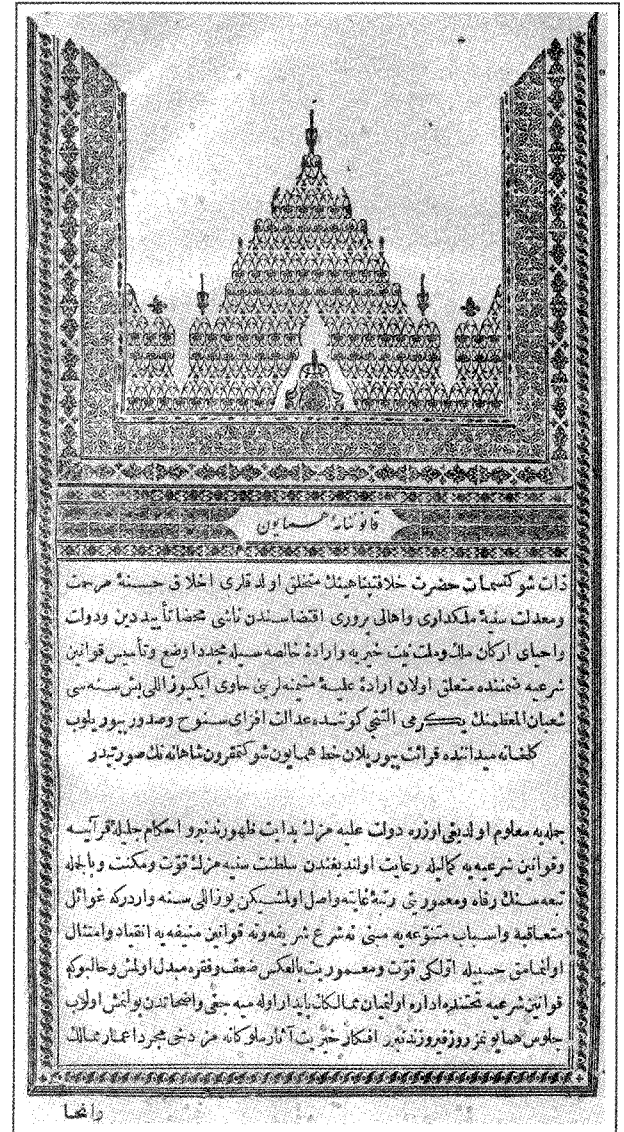 قانوننامۀ همایون
ذات شوکتسمات حضرت خلافتپناهینك متخلق اولدقلری اخلاق حسنۀ مرحمت
ومعدلت سنیۀ ملکداری واهالی پروری اقتضاسندن ناشی محضا تأیید دین ودولت
واحیای ارکان ملك وملت نیت خیریه وارادۀ خالصه سیله مجددا وضع وتأسیس قوانین
شرعیه ضمننده متعلق اولان ارادۀ علیۀ متینه لرینی حاوی ایکیوز اللی بش سنه سی
شعبان المعظمنك یکرمی التنجی کوننده عدالت افزای سنوح وصدور بیوریلوب
کلخانه میداننده قرائت بیوریلان خط همایون شوکتمقرون شاهانه نك صورتیدر
جمله یه معلوم اولدیغی اوزره دولت علیه مزك بدایت ظهورندنبرو احکام جلیلۀ قرآنیه
وقوانین شرعیه یه کمالیله رعایت اولندیغندن سلطنت سنیه مزك قوت ومکنت وبالجمله
تبعه سنك رفاه ومعموریتی رتبۀ غایته واصل اولمشیکن یوز اللی سنه واردرکه غوائل
متعاقبه واسباب متنوعه یه مبنی نه شرع شریفه ونه قوانین منیفه یه انقیاد وامتثال
اولنمامق حسبیله اولکی قوت ومعموریت بالعکس ضعف وفقره مبدل اولمش وحالبوکه
قوانین شرعیه تحتنده اداره اولنمیان ممالکك پایدار اوله میه جغی واضحاتدن بولنمش اولوب
جلوس همایونمز روز فیروزندنبرو افکار خیریت آثار ملوکانه مز دخی مجرد اعمار ممالك